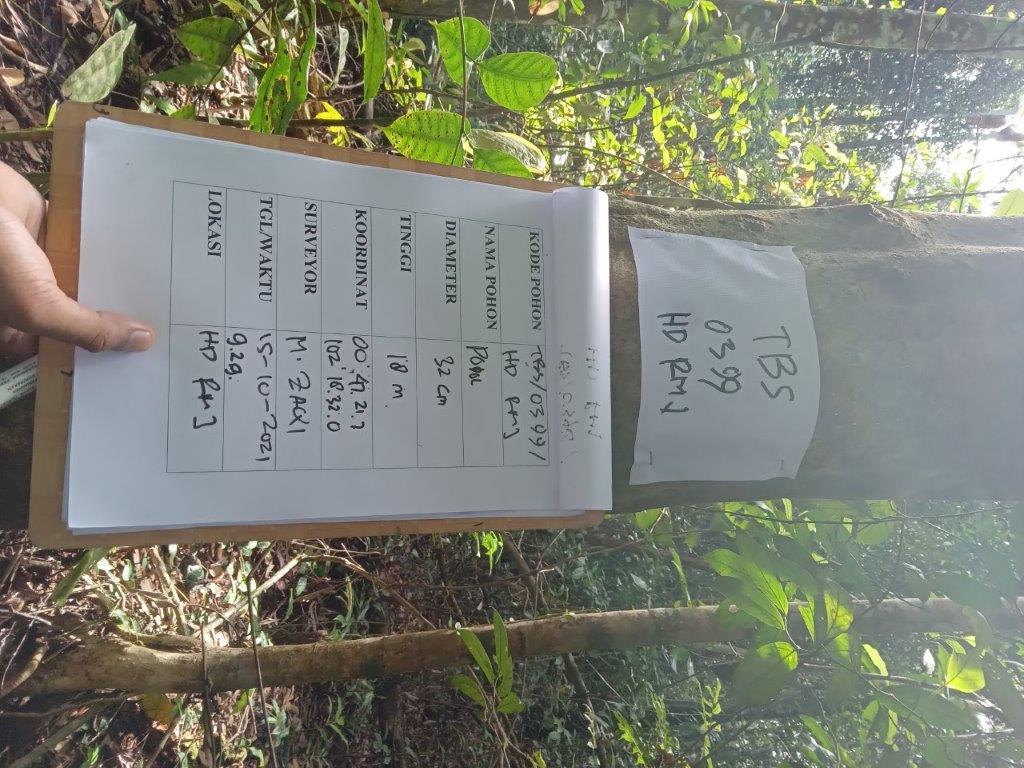 TBS
0399
HD RMJ
KODE POHON TBS/0399/
HD RMJ
NAMA POHON
DIAMETER 32 cm
TINGGI 18 m.
KOORDINAT 00°.47.21.7
102° 18.32.0
SURVEYOR M. ZAQI
TGL/WAKTU 15-10-2021
9.29.
LOKASI HD RMJ